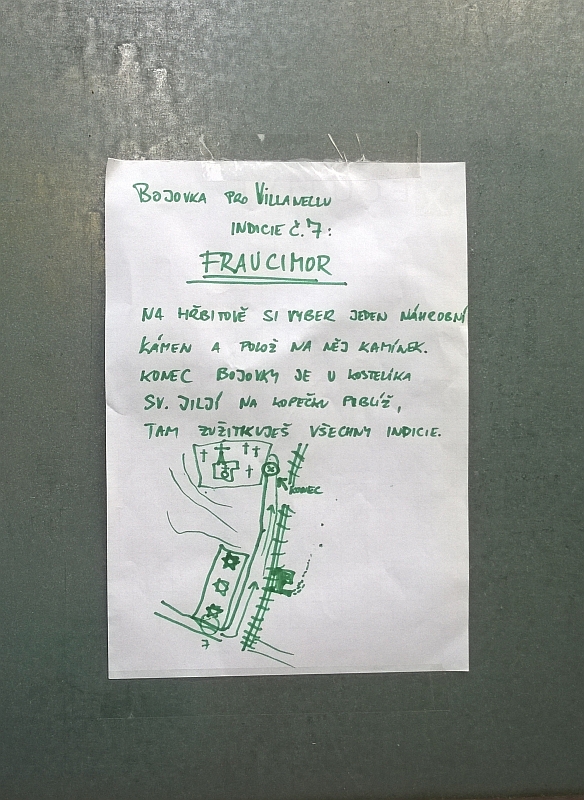 BOJOVKA PRO VILLANELLU
INDICIE Č. 7:
FRAUCIMOR
NA HŘBITOVĚ SI VYBER JEDEN NÁHROBNÍ
KÁMEN A POLOŽ NA NĚJ KAMÍNEK.
KONEC BOJOVKY JE U KOSTELÍKA
SV. JILJÍ NA KOPEČKU POBLÍŽ,
TAM ZUŽITKUJEŠ VŠECHNY INDICIE.
KONEC
7